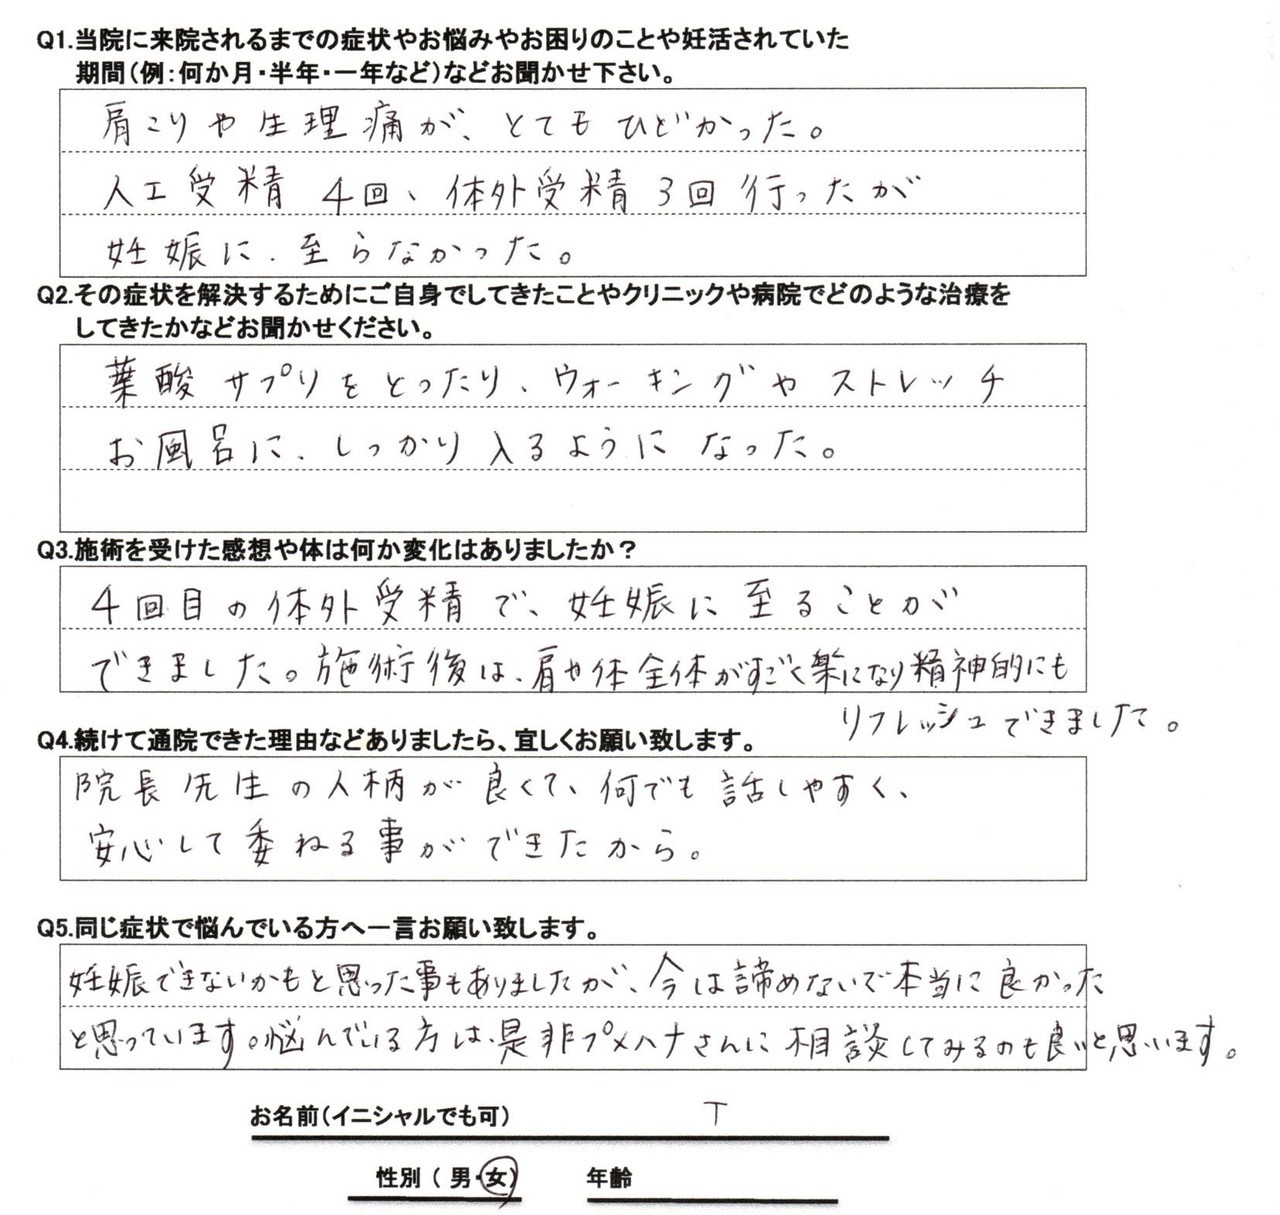 Q1.当院に来院されるまでの症状やお悩みやお困りのことや妊活されていた
期間(例:何か月・半年・一年など)などお聞かせ下さい。
肩こりや生理痛が、とてもひどかった。
人工受精 4回、体外受精3回行ったが
妊娠に、至らなかった。
Q2.その症状を解決するためにご自身でしてきたことやクリニックや病院でどのような治療を
してきたかなどお聞かせください。
葉酸サプリをとったり、ウォーキングやストレッチ
お風呂に、しっかり入るようになった。
Q3.施術を受けた感想や体は何か変化はありましたか?
4回目の体外受精で、妊娠に至ることが
できました。施術後は、肩や体全体がすごく楽になり精神的にも
リフレッシュできました。
Q4.続けて通院できた理由などありましたら、宜しくお願い致します。
院長先生の人柄が良くて、何でも話しやすく、
安心して委ねる事ができたから。
Q5.同じ症状で悩んでいる方へ一言お願い致します。
妊娠できないかもと思った事もありましたが、今は諦めないで本当に良かった
と思っています。悩んでいる方は、是非プメハナさんに相談してみるのも良いと思います。
お名前(イニシャルでも可) T
性別(男・女) 年齢